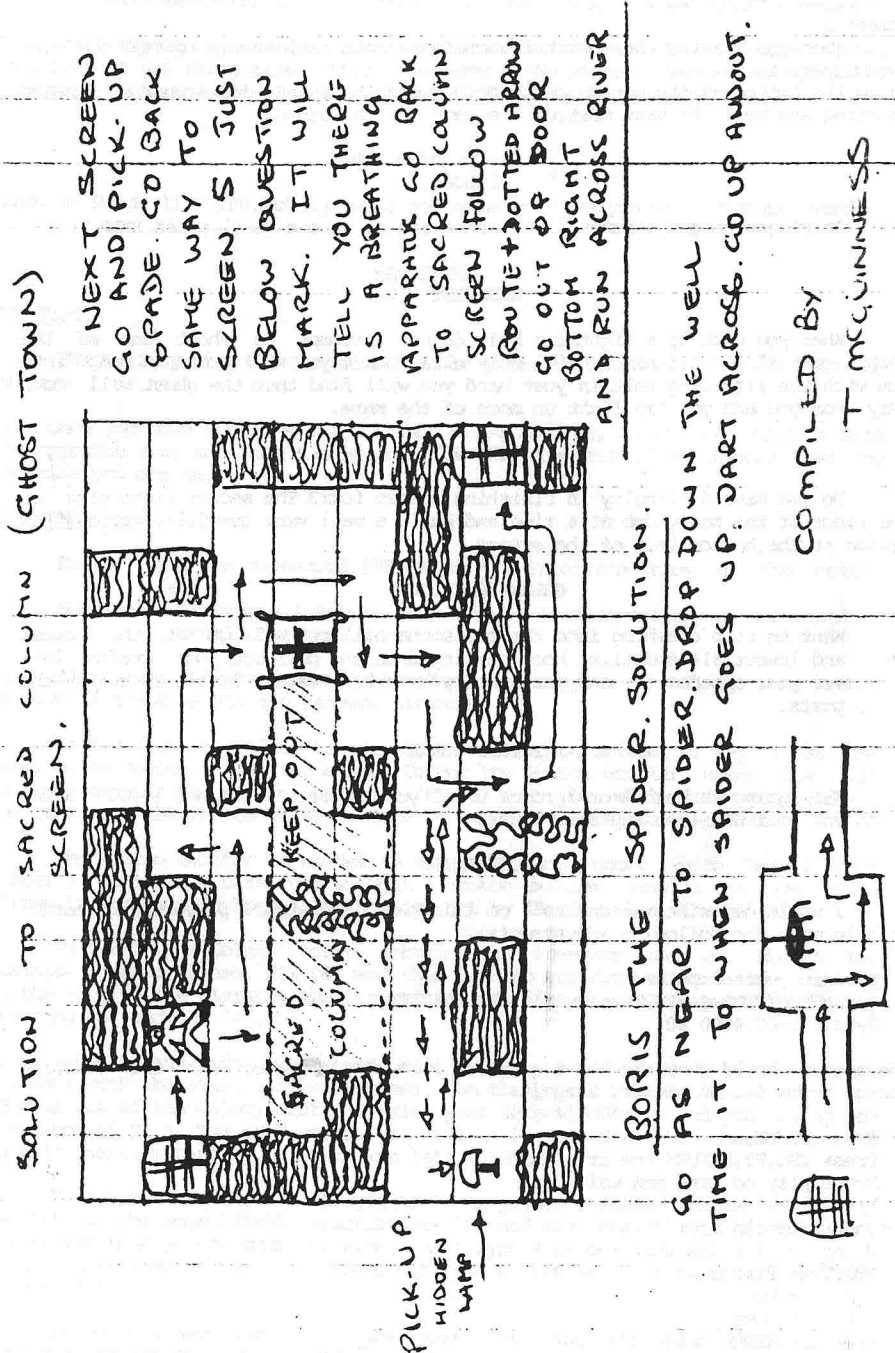 SOLUTION TO SACRED COLUMN (GHOST TOWN)
SCREEN.
NEXT SCREEN
GO AND PICK-UP
SPADE. GO BACK
SAME WAY TO
SCREEN 5 JUST
BELOW QUESTION
MARK. IT WILL
TELL YOU THERE
IS A BREATHING
APPARATUS GO BACK
TO SACRED COLUMN
SCREEN FOLLOW
ROUTE + DOTTED ARROW
GO OUT OF DOOR
BOTTOM RIGHT
AND RUN ACROSS RIVER
SACRED KEEP OUT
COLUMN
PICK-UP
HIDDEN
LAMP
BORIS THE SPIDER. SOLUTION.
GO AS NEAR TO SPIDER, DROP DOWN THE WELL
TIME IT TO WHEN SPIDER GOES UP. DART ACROSS. GO UP AND OUT.
COMPILED BY
T MCGUINNESS